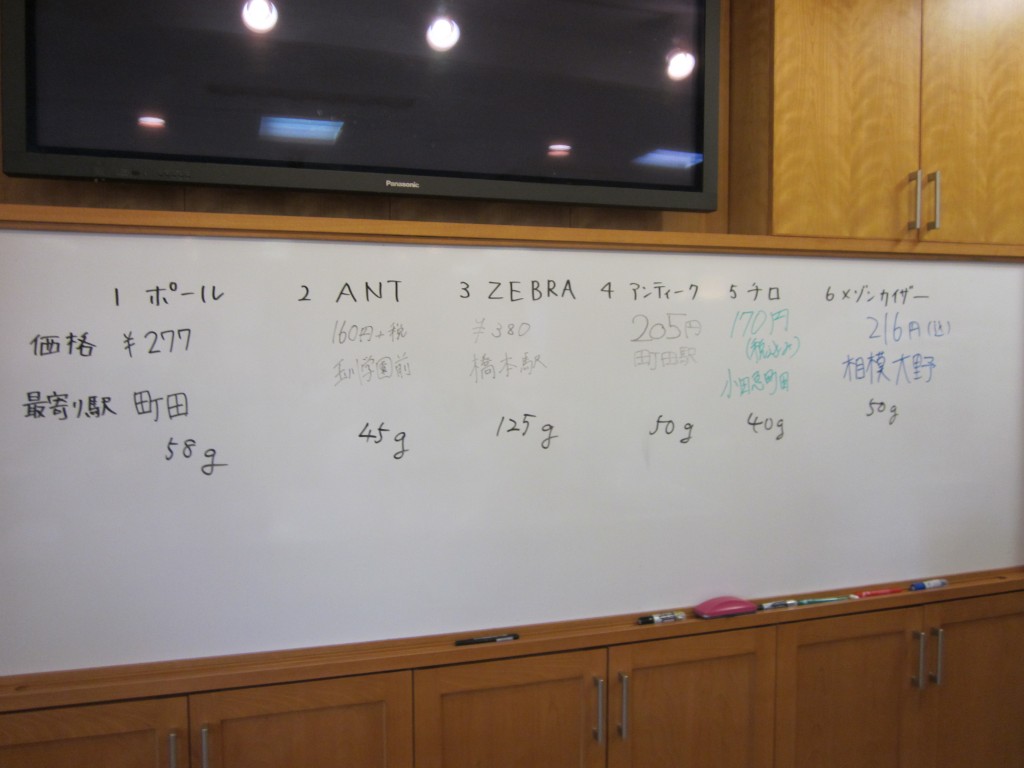 Panasonic
1 ポール 2 ANT 3 ZEBRA 4 アンティーク 5 チロ 6 メゾンカイザー
価格 ¥277 160円+税 ¥380 205円 170円 216円(込)
(税込み)
最寄り駅 町田 玉川学園前 橋本駅 町田駅 小田急町田 相模大野
58g 45g 125g 50g 40g 50g